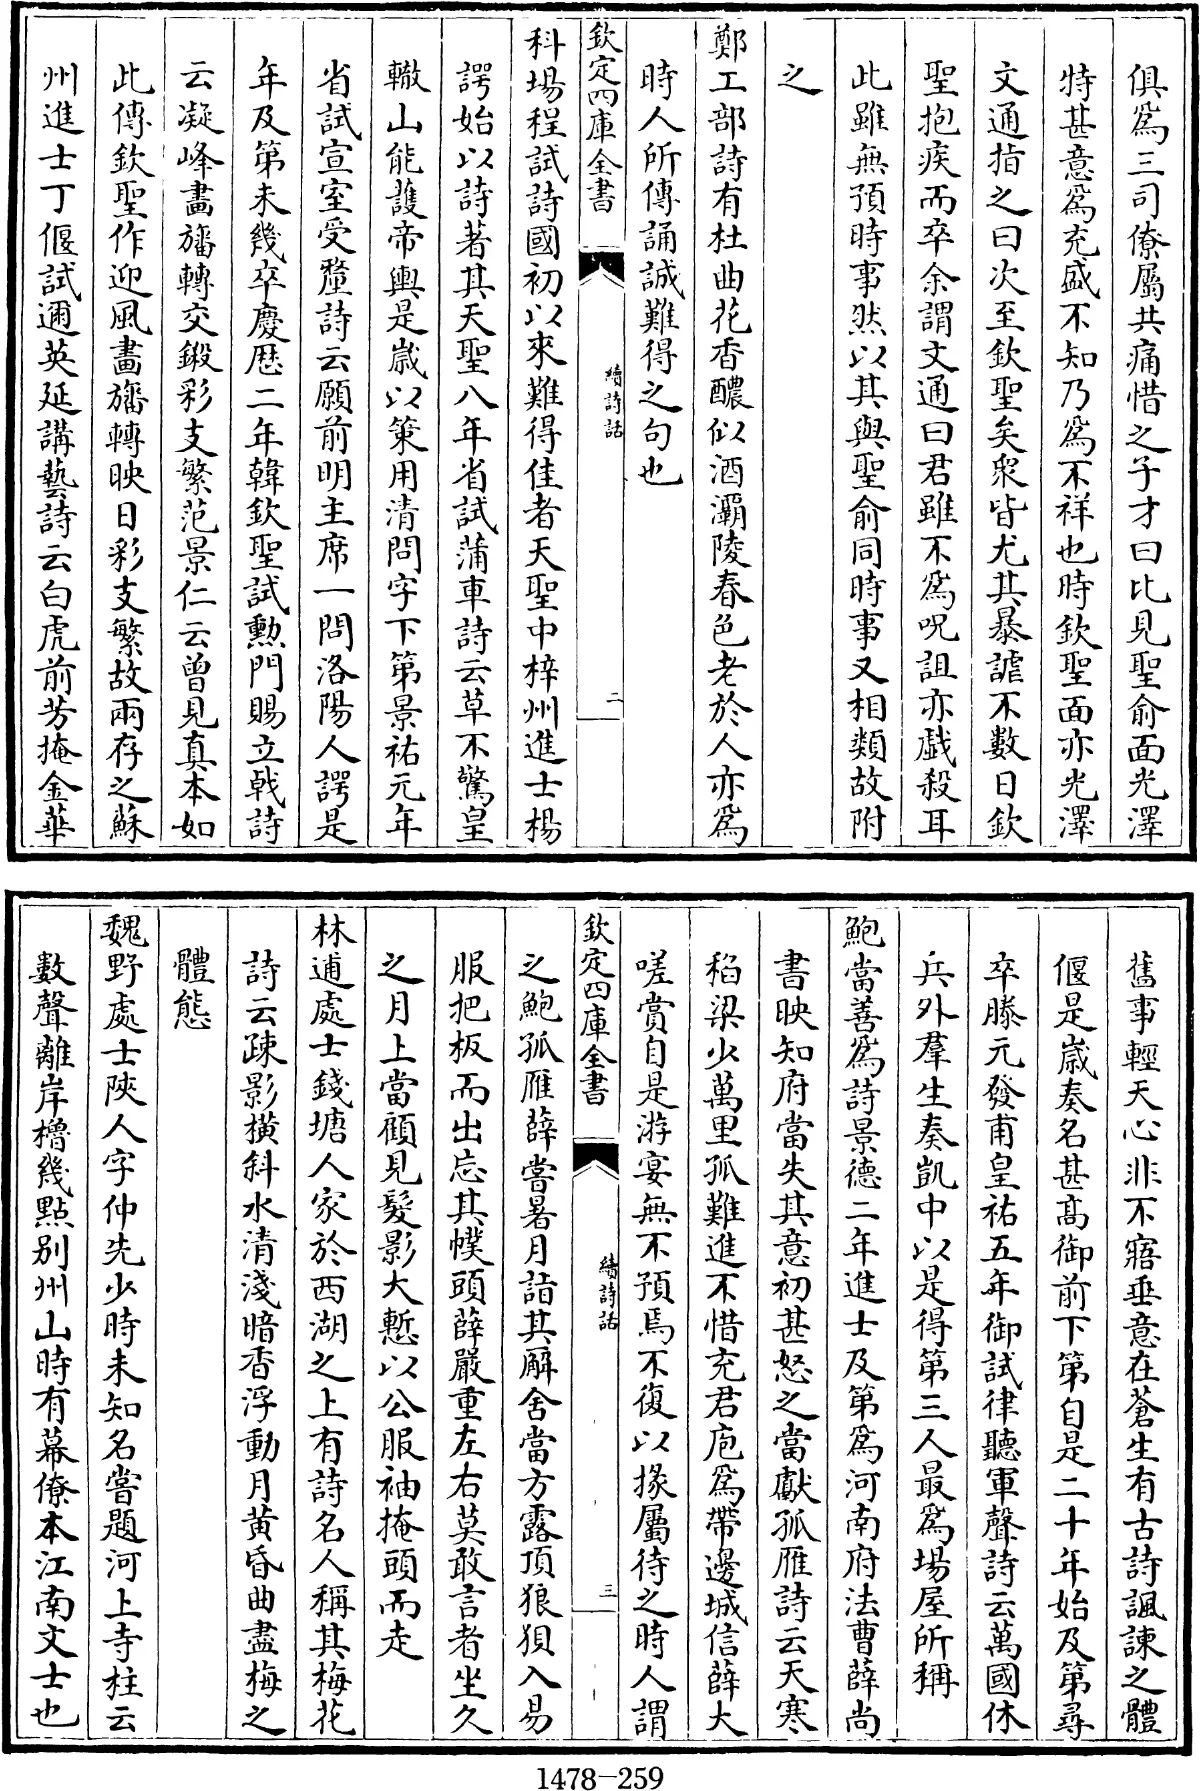 俱爲三司僚屬共痛惜之子才曰比見聖俞面光澤
特甚意爲充盛不知乃爲不祥也時欽聖面亦光澤
文通指之曰次至欽聖矣衆皆尤其暴謔不數日欽
聖抱疾而卒余謂文通曰君雖不爲呪詛亦戲殺耳
此雖無預時事然以其與聖俞同時事又相類故附
之
鄭工部詩有杜曲花香醲似酒灞陵春色老於人亦爲
時人所傳誦誠難得之句也
欽定四庫全書
續詩話
二
科場程試詩國初以來難得佳者天聖中梓州進士楊
諤始以詩著其天聖八年省試蒲車詩云草不驚皇
轍山能護帝輿是歲以策用清問字下第景祐元年
省試宣室受釐詩云願前明主席一問洛陽人諤是
年及第未幾卒慶厯二年韓欽聖試勲門賜立戟詩
云凝峰畫旛轉交鎩彩支繁范景仁云曾見真本如
此傳欽聖作迎風畫旛轉映日彩支繁故兩存之蘇
州進士丁偃試邇英延講藝詩云白虎前芳掩金華
舊事輕天心非不寤垂意在蒼生有古詩諷諫之體
偃是歲奏名甚髙御前下第自是二十年始及第尋
卒滕元發甫皇祐五年御試律聽軍聲詩云萬國休
兵外羣生奏凱中以是得第三人最爲場屋所稱
鮑當善爲詩景德二年進士及第爲河南府法曹薛尚
書映知府當失其意初甚怒之當獻孤雁詩云天寒
稻梁少萬里孤難進不惜充君庖爲帶邊城信薛大
嗟賞自是游宴無不預焉不復以掾屬待之時人謂
欽定四庫全書
續詩話
三
之鮑孤雁薛嘗暑月詣其廨舍當方露頂狼狽入易
服把板而出忘其幞頭薛嚴重左右莫敢言者坐久
之月上當顧見髮影大慙以公服袖掩頭而走
林逋處士錢塘人家於西湖之上有詩名人稱其梅花
詩云疎影橫斜水清淺暗香浮動月黄昏曲盡梅之
體態
魏野處士陜人字仲先少時未知名嘗題河上寺柱云
數聲離岸櫓幾點别州山時有幕僚本江南文士也
1478-259